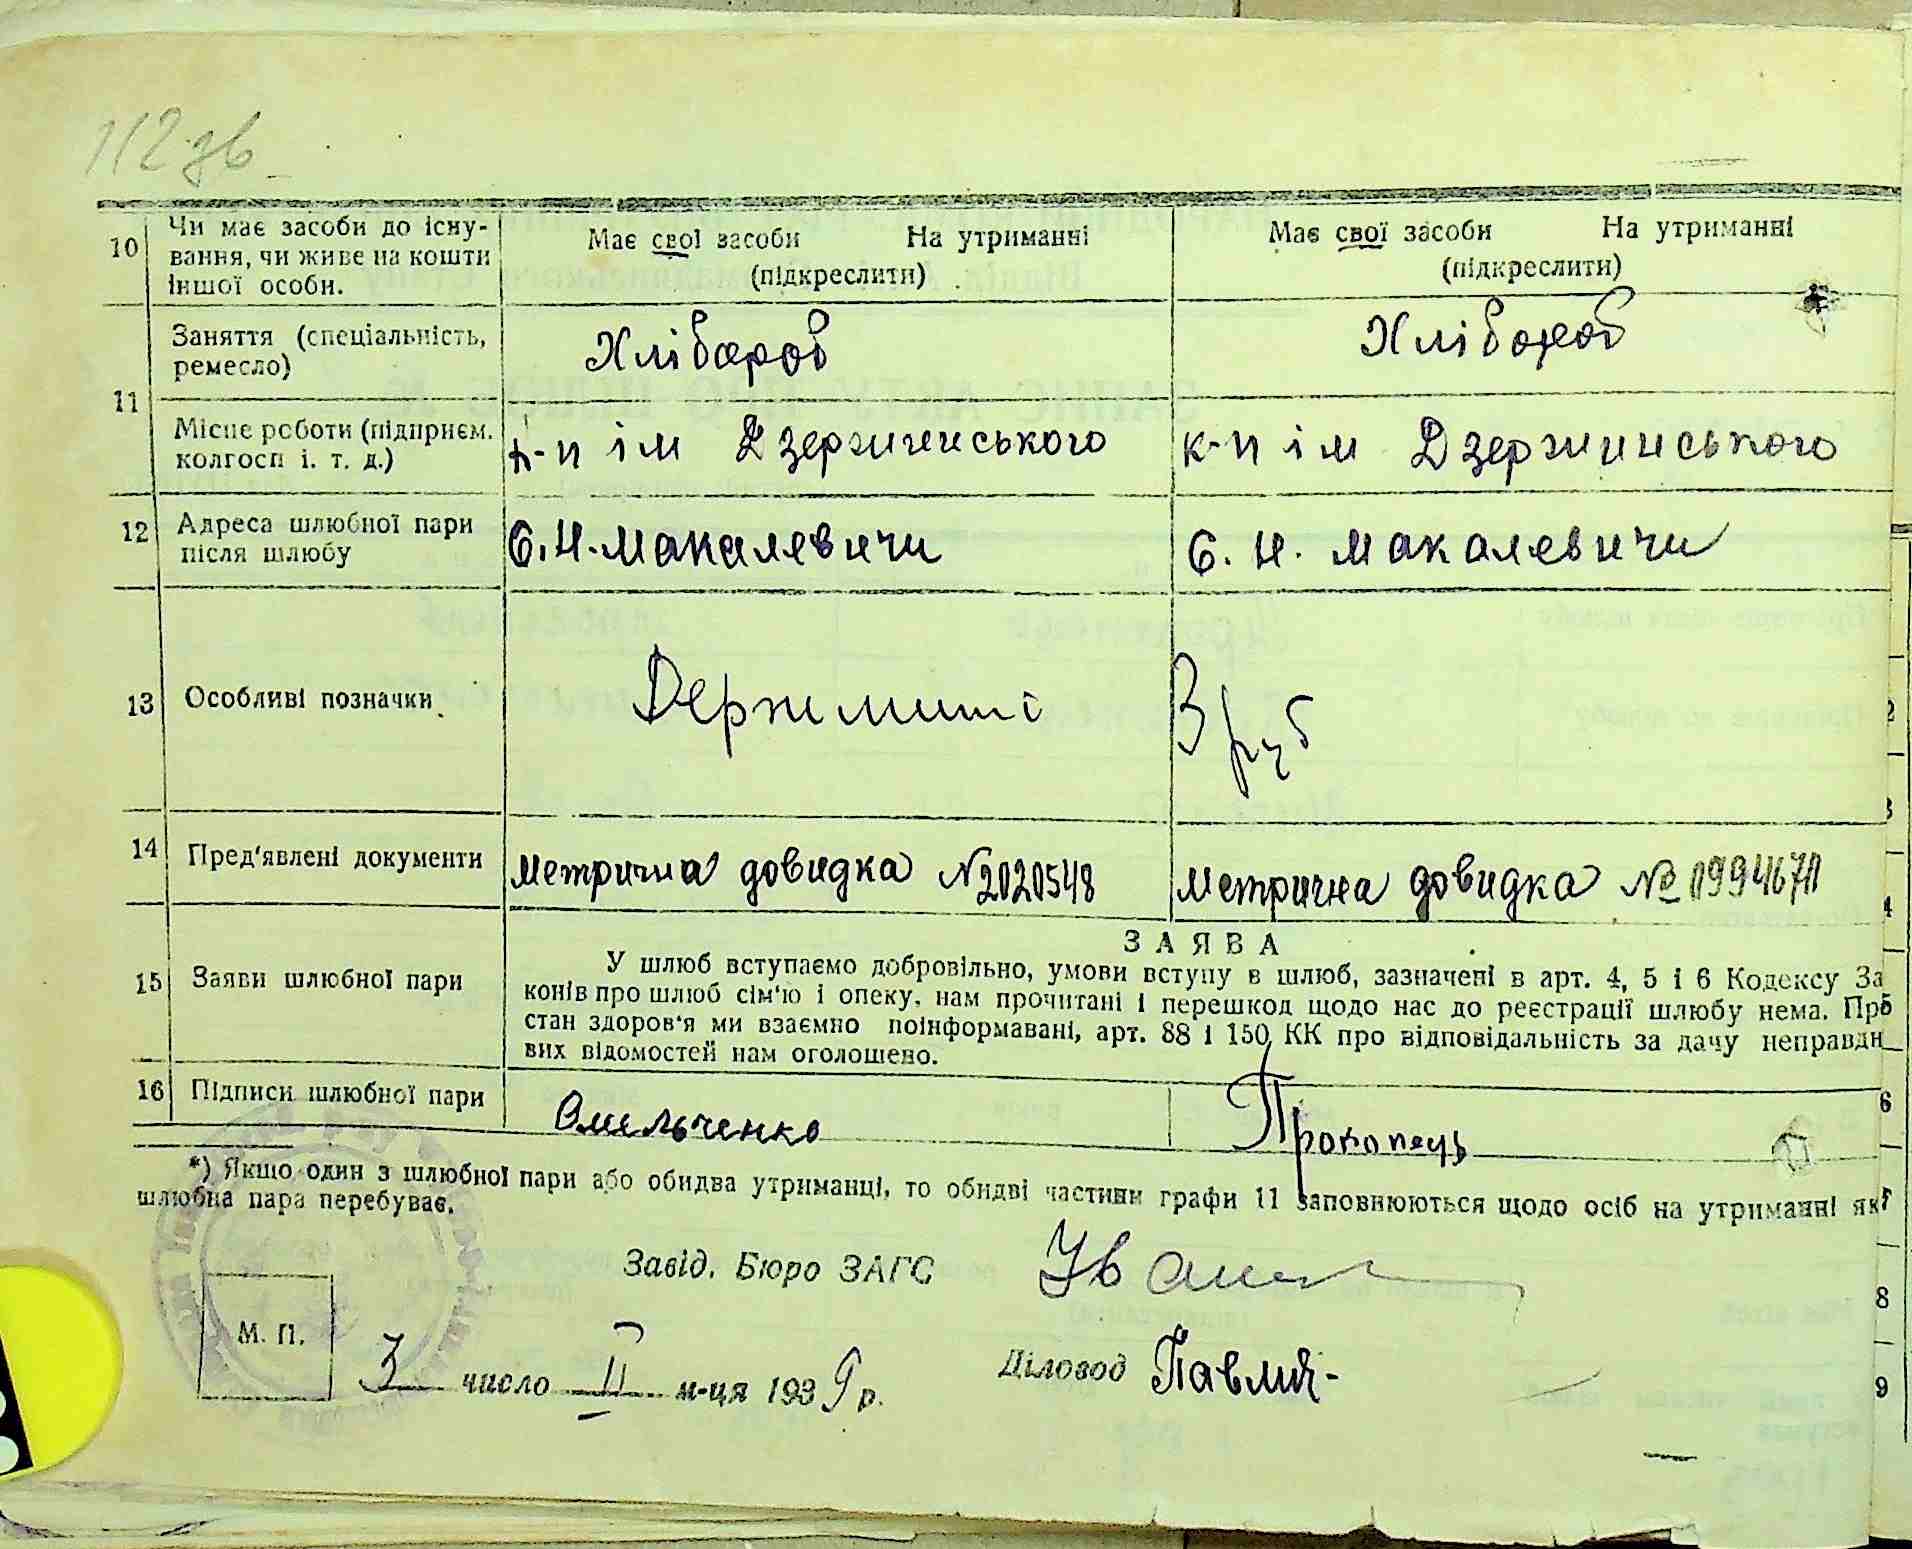 112 зв
10 Чи має засоби до існу-
вання, чи живе на кошти
іншої особи.
Має свої засоби На утриманні
(підкреслити)
Має свої засоби На утриманні
(підкреслити)
11
Заняття (спеціальність,
ремесло)
Хлібороб
Хлібороб
Місце роботи (підприєм.
колгосп і. т. д.)
к-п ім Дзержинського
к-п ім Дзержинського
12 Адреса шлюбної пари
після шлюбу
С. Н. Макалевичи
С. Н. Макалевичи
13 Особливі позначки
Держмиті
3 руб
14 Пред'явлені документи
Метрична довидка № 2020548
Метрична довидка №
15 Заяви шлюбної пари
ЗАЯВА
У шлюб вступаємо добровільно, умови вступу в шлюб, зазначені в арт. 4, 5 і 6 Кодексу За
конів про шлюб сім'ю і опеку, нам прочитані і перешкод щодо нас до реєстрації шлюбу нема. Про
стан здоров'я ми взаємно поінформавані, арт. 88 і 150 КК про відповідальність за дачу неправди
вих відомостей нам оголошено.
16 Підписи шлюбної пари
Омельченко
Прокопець
*) Якщо один з шлюбної пари або обидва утриманці, то обидві частини графи 11 заповнюються щодо осіб на утриманні як
шлюбна пара перебуває.
Завід. Бюро ЗАГС
М. П.
3 число II м-ця 1939 р.
Діловод
2
3
4
5
6
7
8
9